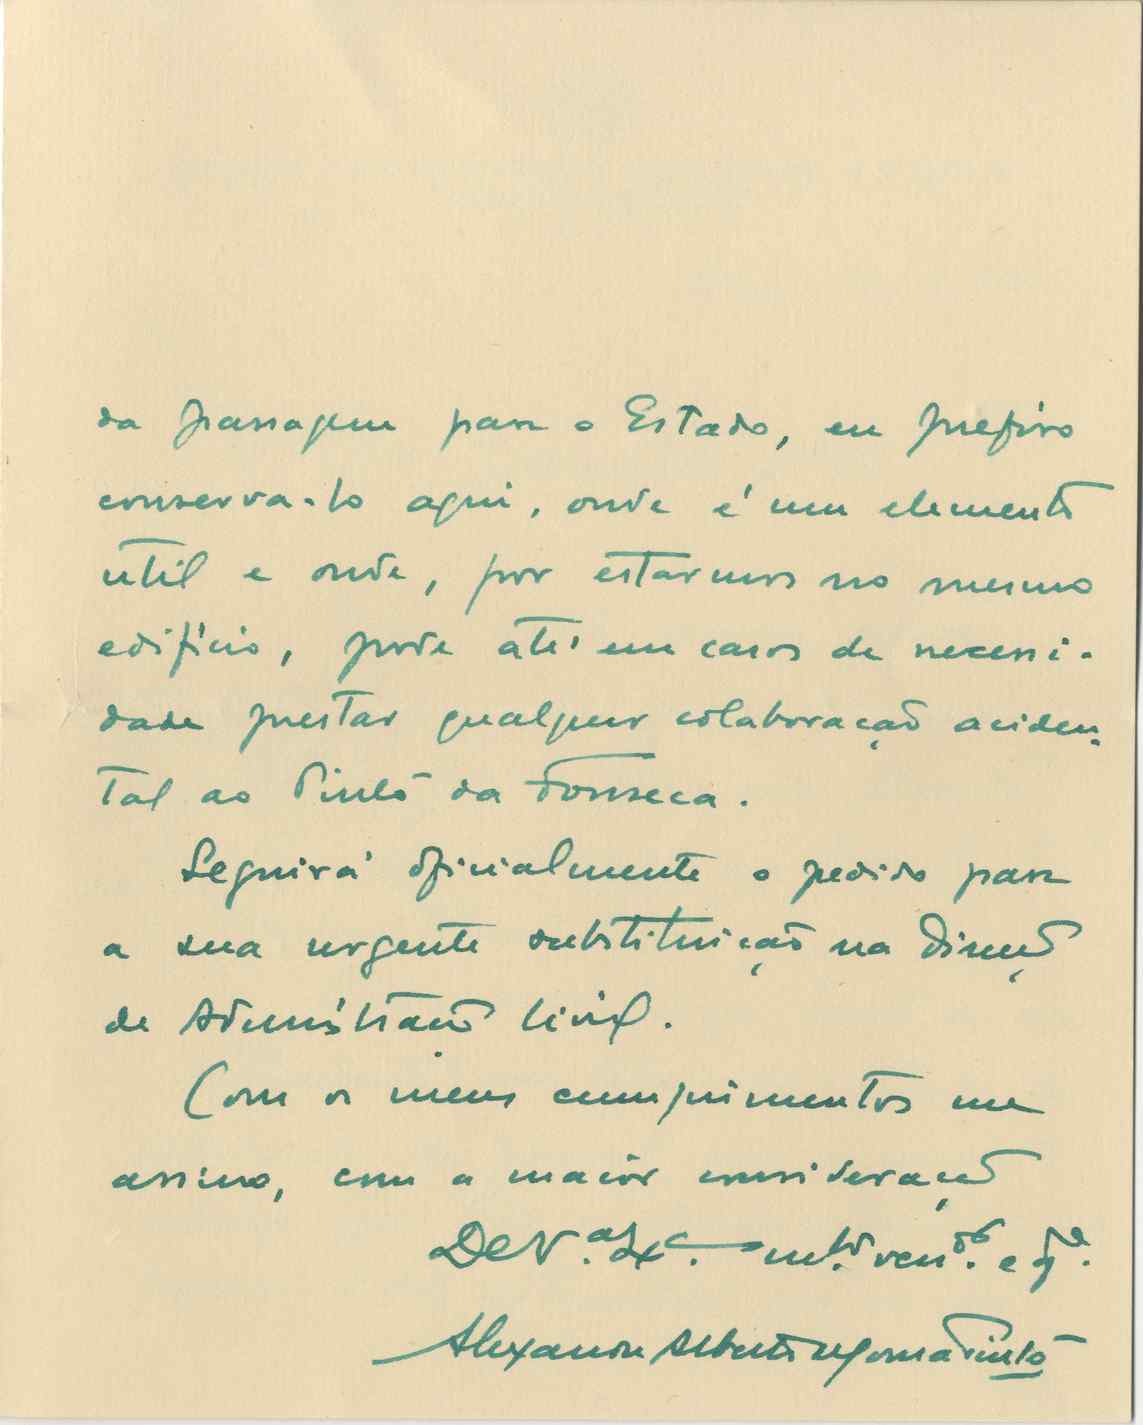 da passagem para o Estado, eu prefiro
conserva-lo aqui, onde é um elemento
util e onde, por estarmos no mesmo
edifício, pode até em casos de necessi-
dade prestar qualquer colaboração aciden-
tal ao Pinto da Fonseca.
Seguirá oficialmente o pedido para
a sua urgente substituição na Direcção
de Administração Civil.
Com os meus cumprimentos me
assino, com a maior consideração
De V. Ex.cia m.to ven.or e
Alexandre Alberto de Sousa Pinto